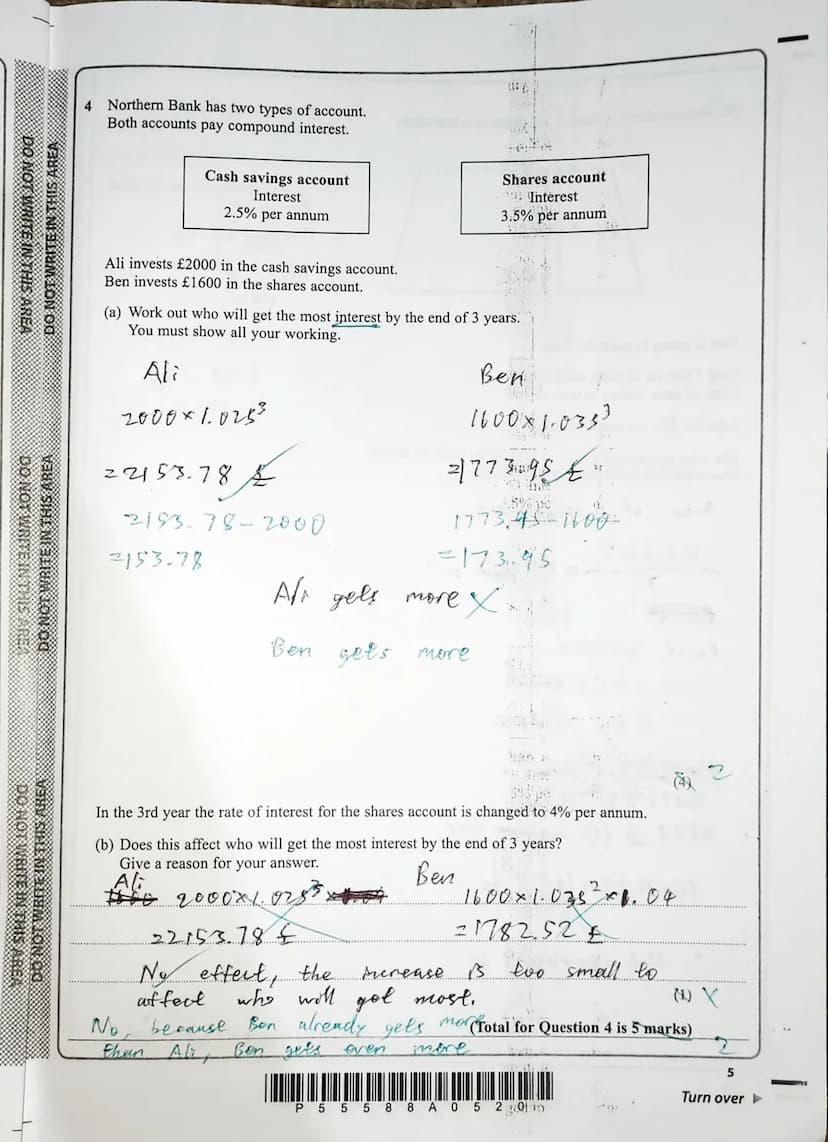 4 Northern Bank has two types of account.
Both accounts pay compound interest.
Cash savings account
Interest
2.5% per annum
Shares account
Interest
3.5% per annum
Ali invests £2000 in the cash savings account.
Ben invests £1600 in the shares account.
(a) Work out who will get the most interest by the end of 3 years.
You must show all your working.
Ali
Ben
2000×1.025³
1600×1.035³
=2153.78 £
=1773.95 £
2153.78-2000
1773.95-1600
=153.78
=173.95
Ali gets more ×
Ben gets more
(4) 2
In the 3rd year the rate of interest for the shares account is changed to 4% per annum.
(b) Does this affect who will get the most interest by the end of 3 years?
Give a reason for your answer.
Ali
Ben
2000×1.025³
1600×1.035²×1.04
=2153.78 £
=1782.52 £
No effect, the increase is too small to
affect who will get most.
(1) ×
No, because Ben already gets more
(Total for Question 4 is 5 marks)
than Ali, Ben gets even more
2
5
Turn over
P55588A0520
DO NOT WRITE IN THIS AREA
DO NOT WRITE IN THIS AREA
DO NOT WRITE IN THIS AREA
DO NOT WRITE IN THIS AREA
DO NOT WRITE IN THIS AREA
DO NOT WRITE IN THIS AREA